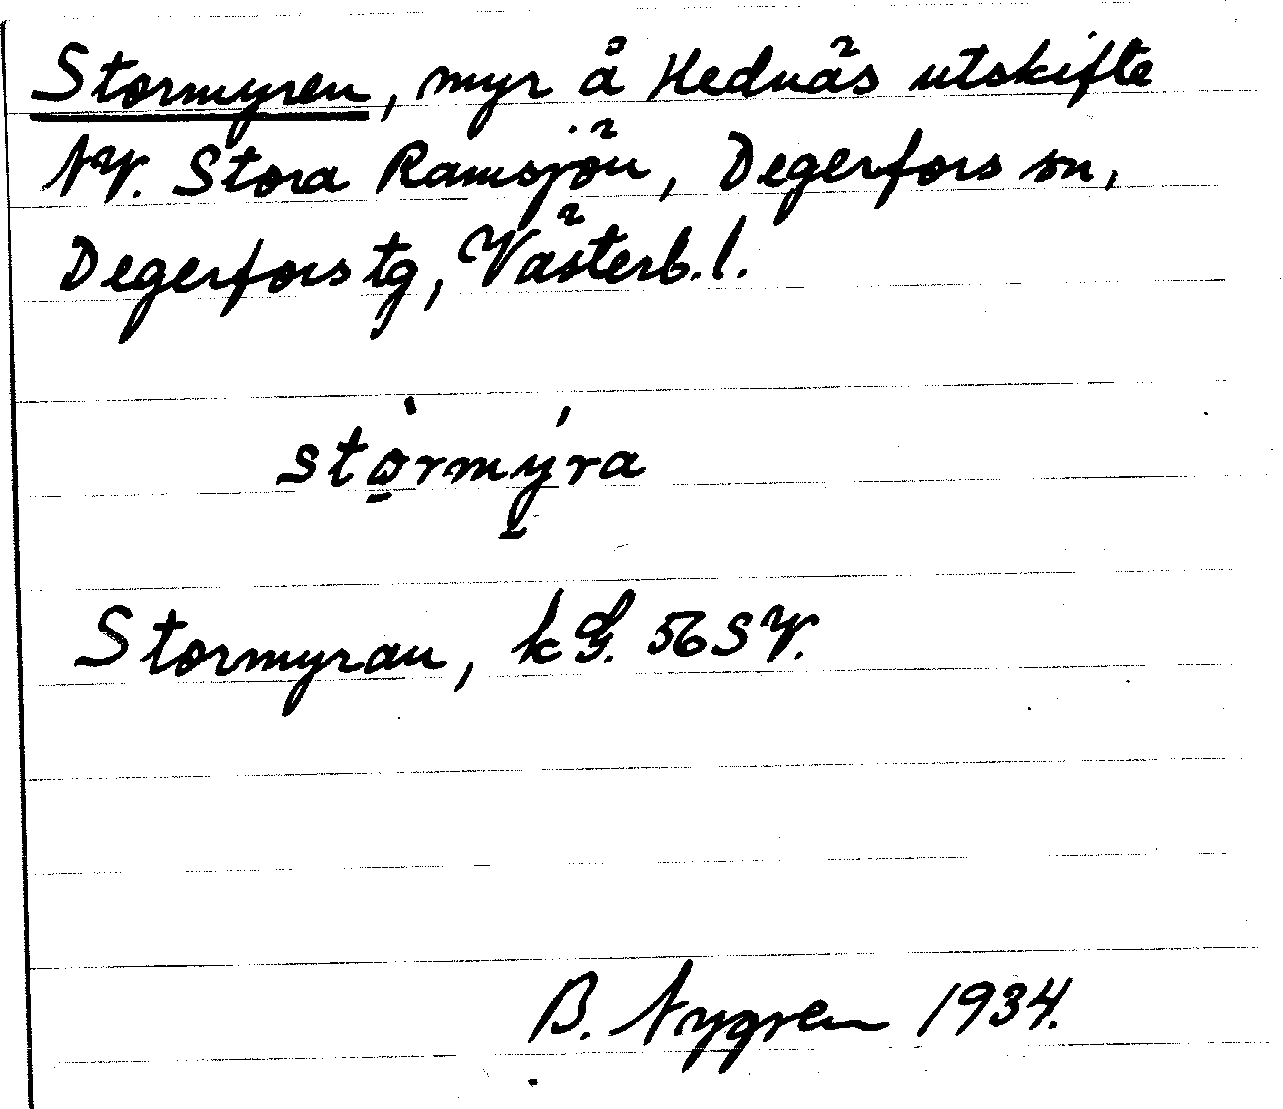 Stormyren, myr å Hednäs utskifte
NV. Stora Ramsjön, Degerfors sn,
Degerfors tg, Västerb. l.
stò̱rmý̱ra
Stormyran, kG. 56 SV.
B. Nygren 1934.